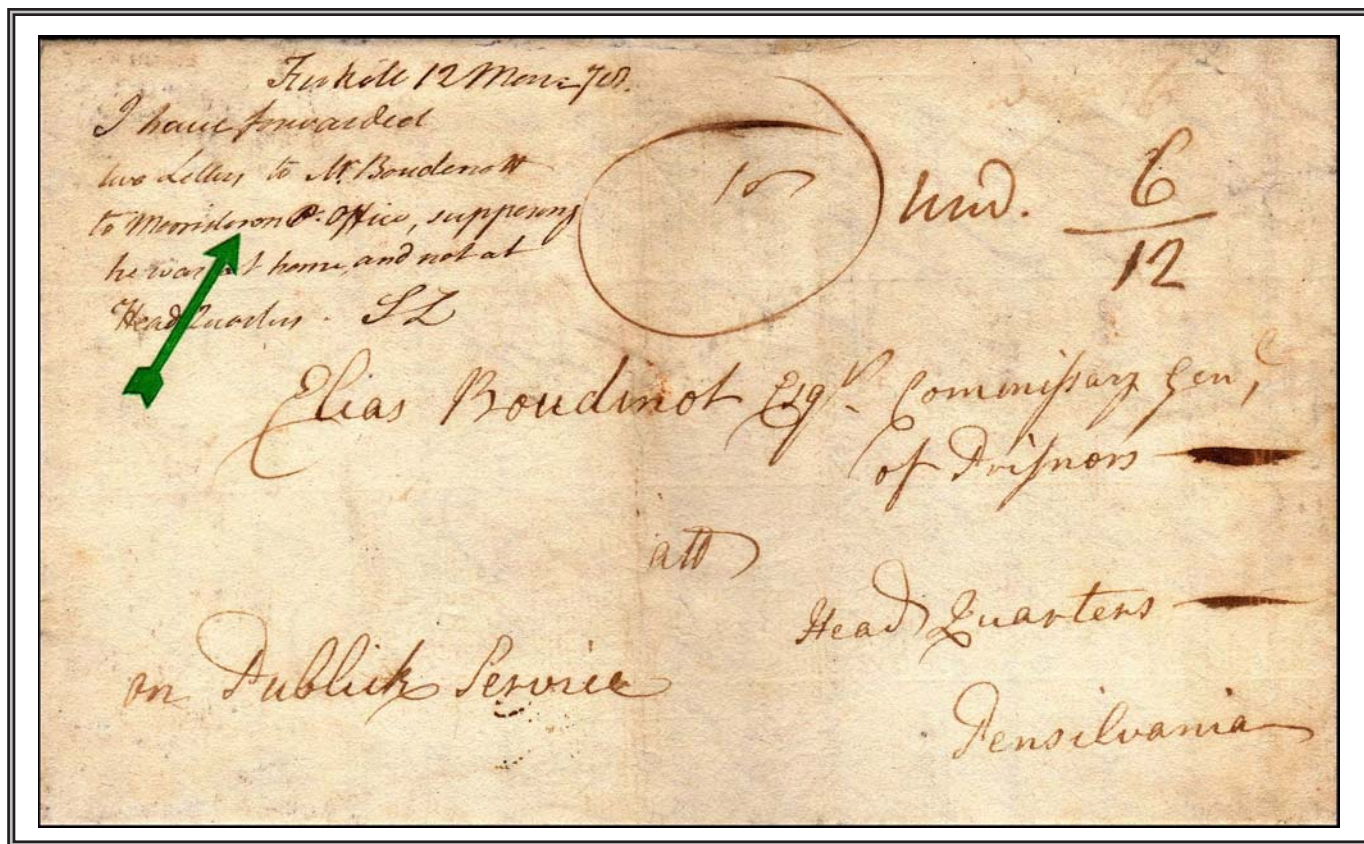 Fishkill 12 Mar: 78.
I have forwarded
two Letters to Mr. Boudenott
to Morristown P: Office, supposing
he was at home, and not at
Head Quarters. SL
10
Und. 6
12
Elias Boudinot Esqr. Commissary Genl
of Prisnors
att
Head Quarters
on Publick Service
Pensilvania